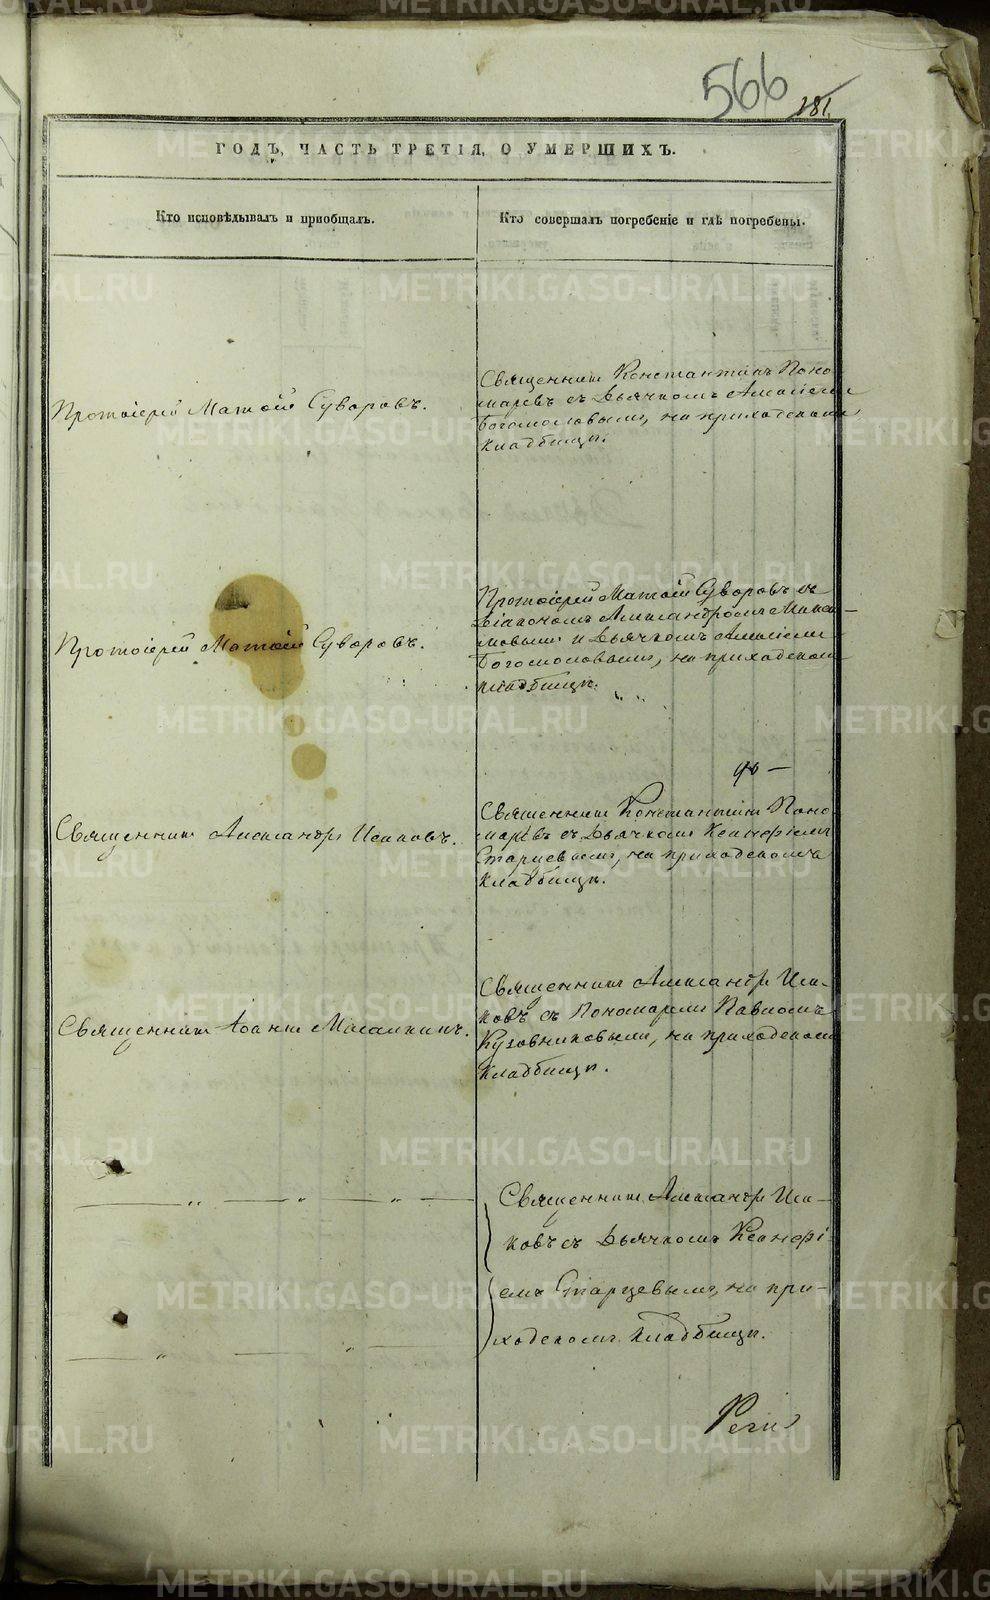 566
281.
ГОДЪ, ЧАСТЬ ТРЕТІЯ, О УМЕРШИХЪ.
Кто исповѣдывалъ и приобщалъ.
Кто совершалъ погребеніе и гдѣ погребены.
Протоіерей Матѳій Суворовъ.
Священникъ Константинъ Поно-
маревъ съ Дьячкомъ Алексіемъ
Богомоловымъ, на приходскомъ
кладбищѣ.
Протоіерей Матѳій Суворовъ.
Протоіерей Матѳій Суворовъ съ
Діакономъ Александромъ
и Дьячкомъ Алексіемъ
Богомоловымъ, на приходскомъ
кладбищѣ.
Священникъ Александръ Исаковъ.
Священникъ Константинъ Поно-
маревъ съ Дьячкомъ Ксенофонтомъ
Старцевымъ, на приходскомъ
кладбищѣ.
Священникъ Іоаннъ
Священникъ Александръ Иса-
ковъ съ Пономаремъ Павломъ
Кузовниковымъ, на приходскомъ
кладбищѣ.
Священникъ Александръ Иса-
ковъ съ Дьячкомъ
Старцевымъ, на при-
ходскомъ кладбищѣ.
METRIKI.GASO-URAL.RU